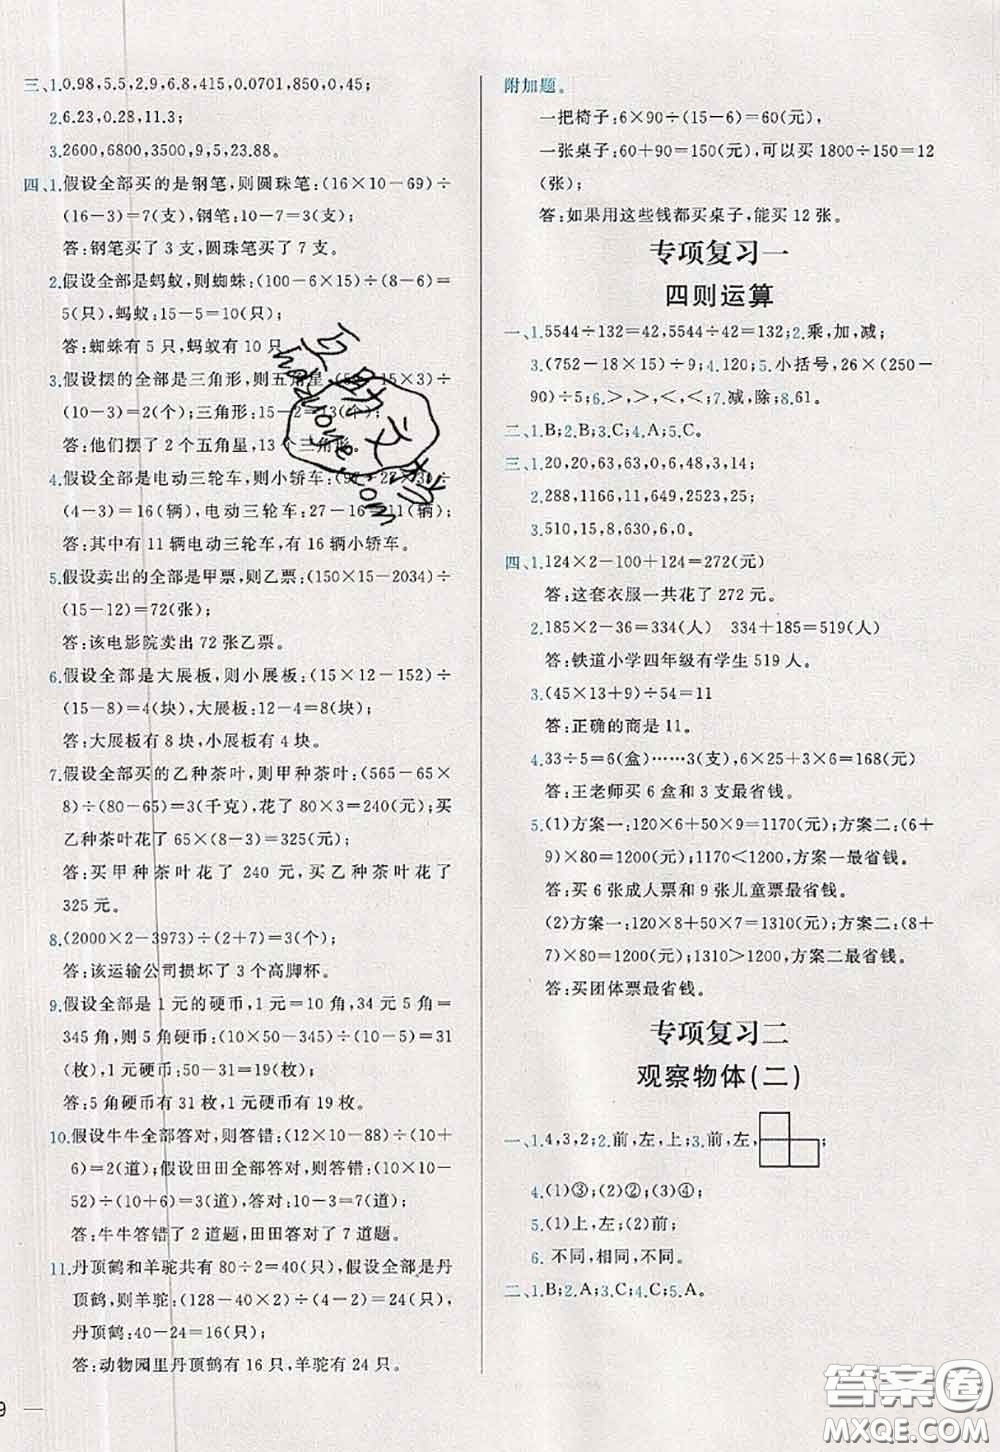 三、1.0.98,5.5,2.9,6.8,415,0.0701,850,0,45;
2.6.23,0.28,11.3;
3.2600,6800,3500,9,5,23.88。
四、1.假设全部买的是钢笔,则圆珠笔:(16×10-69)÷
(16-3)=7(支),钢笔:10-7=3(支);
答:钢笔买了 3 支,圆珠笔买了 7 支。
2.假设全部是蚂蚁,则蜘蛛:(100-6×15)÷(8-6)=
5(只),蚂蚁:15-5=10(只);
答:蜘蛛有 5 只,蚂蚁有 10 只
3.假设摆的全部是三角形,则五角星:(50-15×3)÷
(10-3)=2(个);三角形:15-2=13(个);
答:他们摆了 2 个五角星,13 个三角形。
4.假设全部是电动三轮车,则小轿车:(97-27×3)÷
(4-3)=16(辆),电动三轮车:27-16=11(辆);
答:其中有 11 辆电动三轮车,有 16 辆小轿车。
5.假设卖出的全部是甲票,则乙票:(150×15-2034)÷
(15-12)=72(张);
答:该电影院卖出 72 张乙票。
6.假设全部是大展板,则小展板:(15×12-152)÷
(15-8)=4(块),大展板:12-4=8(块);
答:大展板有 8 块,小展板有 4 块。
7.假设全部买的乙种茶叶,则甲种茶叶:(565-65×
8)÷(80-65)=3(千克),花了 80×3=240(元);买
乙种茶叶花了 65×(8-3)=325(元);
答:买甲种茶叶花了 240 元,买乙种茶叶花了
325 元。
8.(2000×2-3973)÷(2+7)=3(个);
答:该运输公司损坏了 3 个高脚杯。
9.假设全部是 1 元的硬币,1 元=10 角,34 元 5 角=
345 角,则 5 角硬币:(10×50-345)÷(10-5)=31
(枚),1 元硬币:50-31=19(枚);
答:5 角硬币有 31 枚,1 元硬币有 19 枚。
10.假设牛牛全部答对,则答错:(12×10-88)÷(10+
6)=2(道);假设田田全部答对,则答错:(10×10-
52)÷(10+6)=3(道),答对:10-3=7(道);
答:牛牛答错了 2 道题,田田答对了 7 道题。
11.丹顶鹤和羊驼共有 80÷2=40(只),假设全部是丹
顶鹤,则羊驼:(128-40×2)÷(4-2)=24(只),
丹顶鹤:40-24=16(只);
答:动物园里丹顶鹤有 16 只,羊驼有 24 只。
9
附加题。
一把椅子:6×90÷(15-6)=60(元)
一张桌子:60+90=150(元),可以买 1800÷150=12
(张);
答:如果用这些钱都买桌子,能买 12 张。
专项复习一
四则运算
一、1.5544÷132=42,5544÷42=132;2.乘,加,减;
3.(752-18×15)÷9;4.120;5.小括号,26×(250-
90)÷5;6.>,>,<,<;7.减,除;8.61。
二、1.B;2.B;3.C;4.A;5.C。
三、1.20,20,63,63,0,48,3,14;
2.288,1166,11,649,2523,16;
3.510,15,8,630,6,0。
四、1.124×2-100+124=272(元)
答:这套衣服一共花了 272 元。
2.185×2-36=334(人) 334+185=519(人)
答:铁道小学四年级有学生 519 人。
3.(45×13+9)÷54=11
答:正确的商是 11。
4.33÷5=6(盒)……3(支),6×25+3×6=168(元)
答:王老师买 6 盒和 3 支最省钱。
5.(1)方案一:120×6+50×9=1170(元);方案二:(6+
9)×80=1200(元);1170<1200,方案一最省钱。
答:买 6 张成人票和 9 张儿童票最省钱。
(2)方案一:120×8+50×7=1310(元);方案二:(8+
7)×80=1200(元);1310>1200,方案二最省钱。
答:买团体票最省钱。
专项复习二
观察物体(二)
一、1.4,3,2;2.前,左,上;3.前,左, ;
4.(1)③;(2)②;(3)④;
5.(1)上,左;(2)前;
6. 不同,相同,不同。
二、1.B;2.A;3.C;4.C;5.A。
答案圈
MXQE.COM